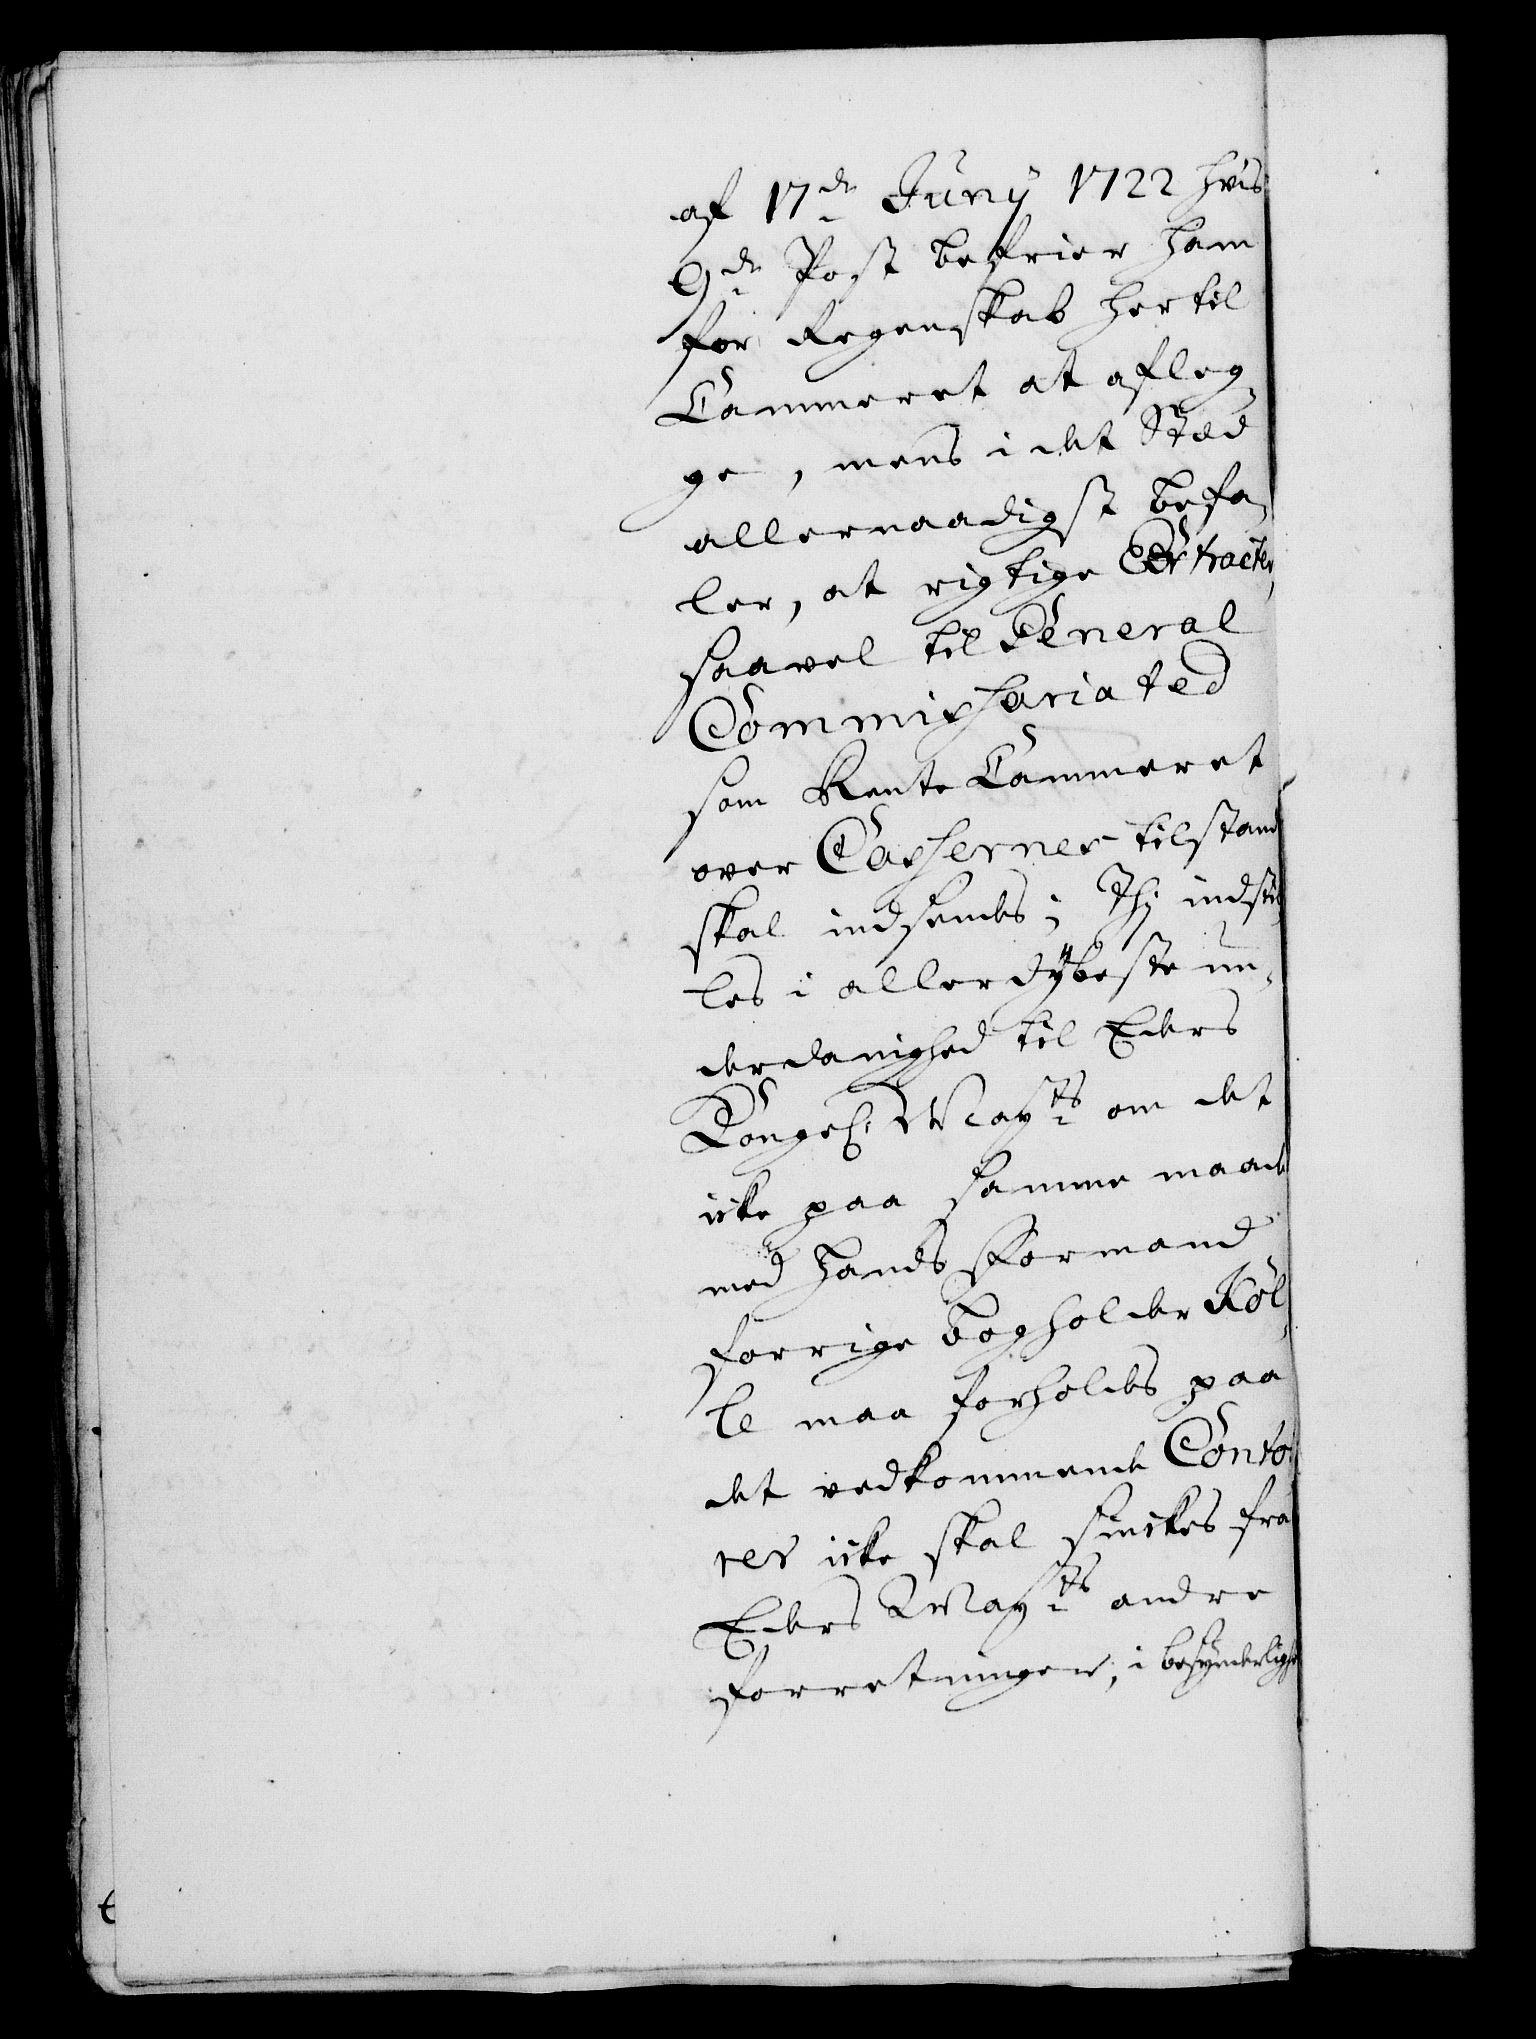 af 17de Junij 1722 hvis
9de Post befrier ham
for Regenskab her til
Cammeret at afleg-
ge, mens i det Sted
allernaadigst befa-
ler, at rigtige Extracter,
saavel til General
Commissariated
som Rente Cammeret
over Casserner tilstand
skal indsendes; Thj indstil-
les i allerdybeste un-
derdanighed til Eders
Kongel: Mayts om det
icke paa samme maade
med hands Formand
forrige bogholder Köl-
le maa forholdes paa
det vedkommende Conto-
rer icke skal sinckes fra
Eders Mayts andre
forretninger, i besynderlighed